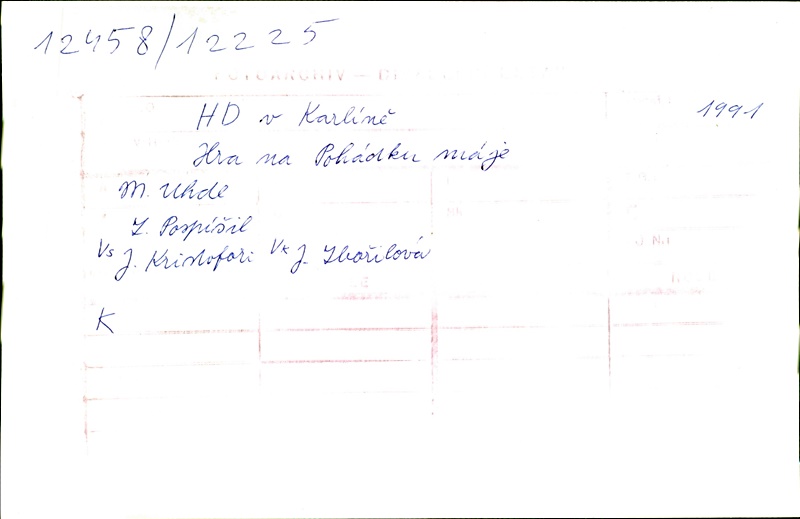 12458/12225
FOTOARCHIV – DI
HD v Karlíně 1991
Hra na Pohádku máje
M. Uhde
Z. Pospíšil
Vs J. Kristofori Vk J. Zbořilová
K